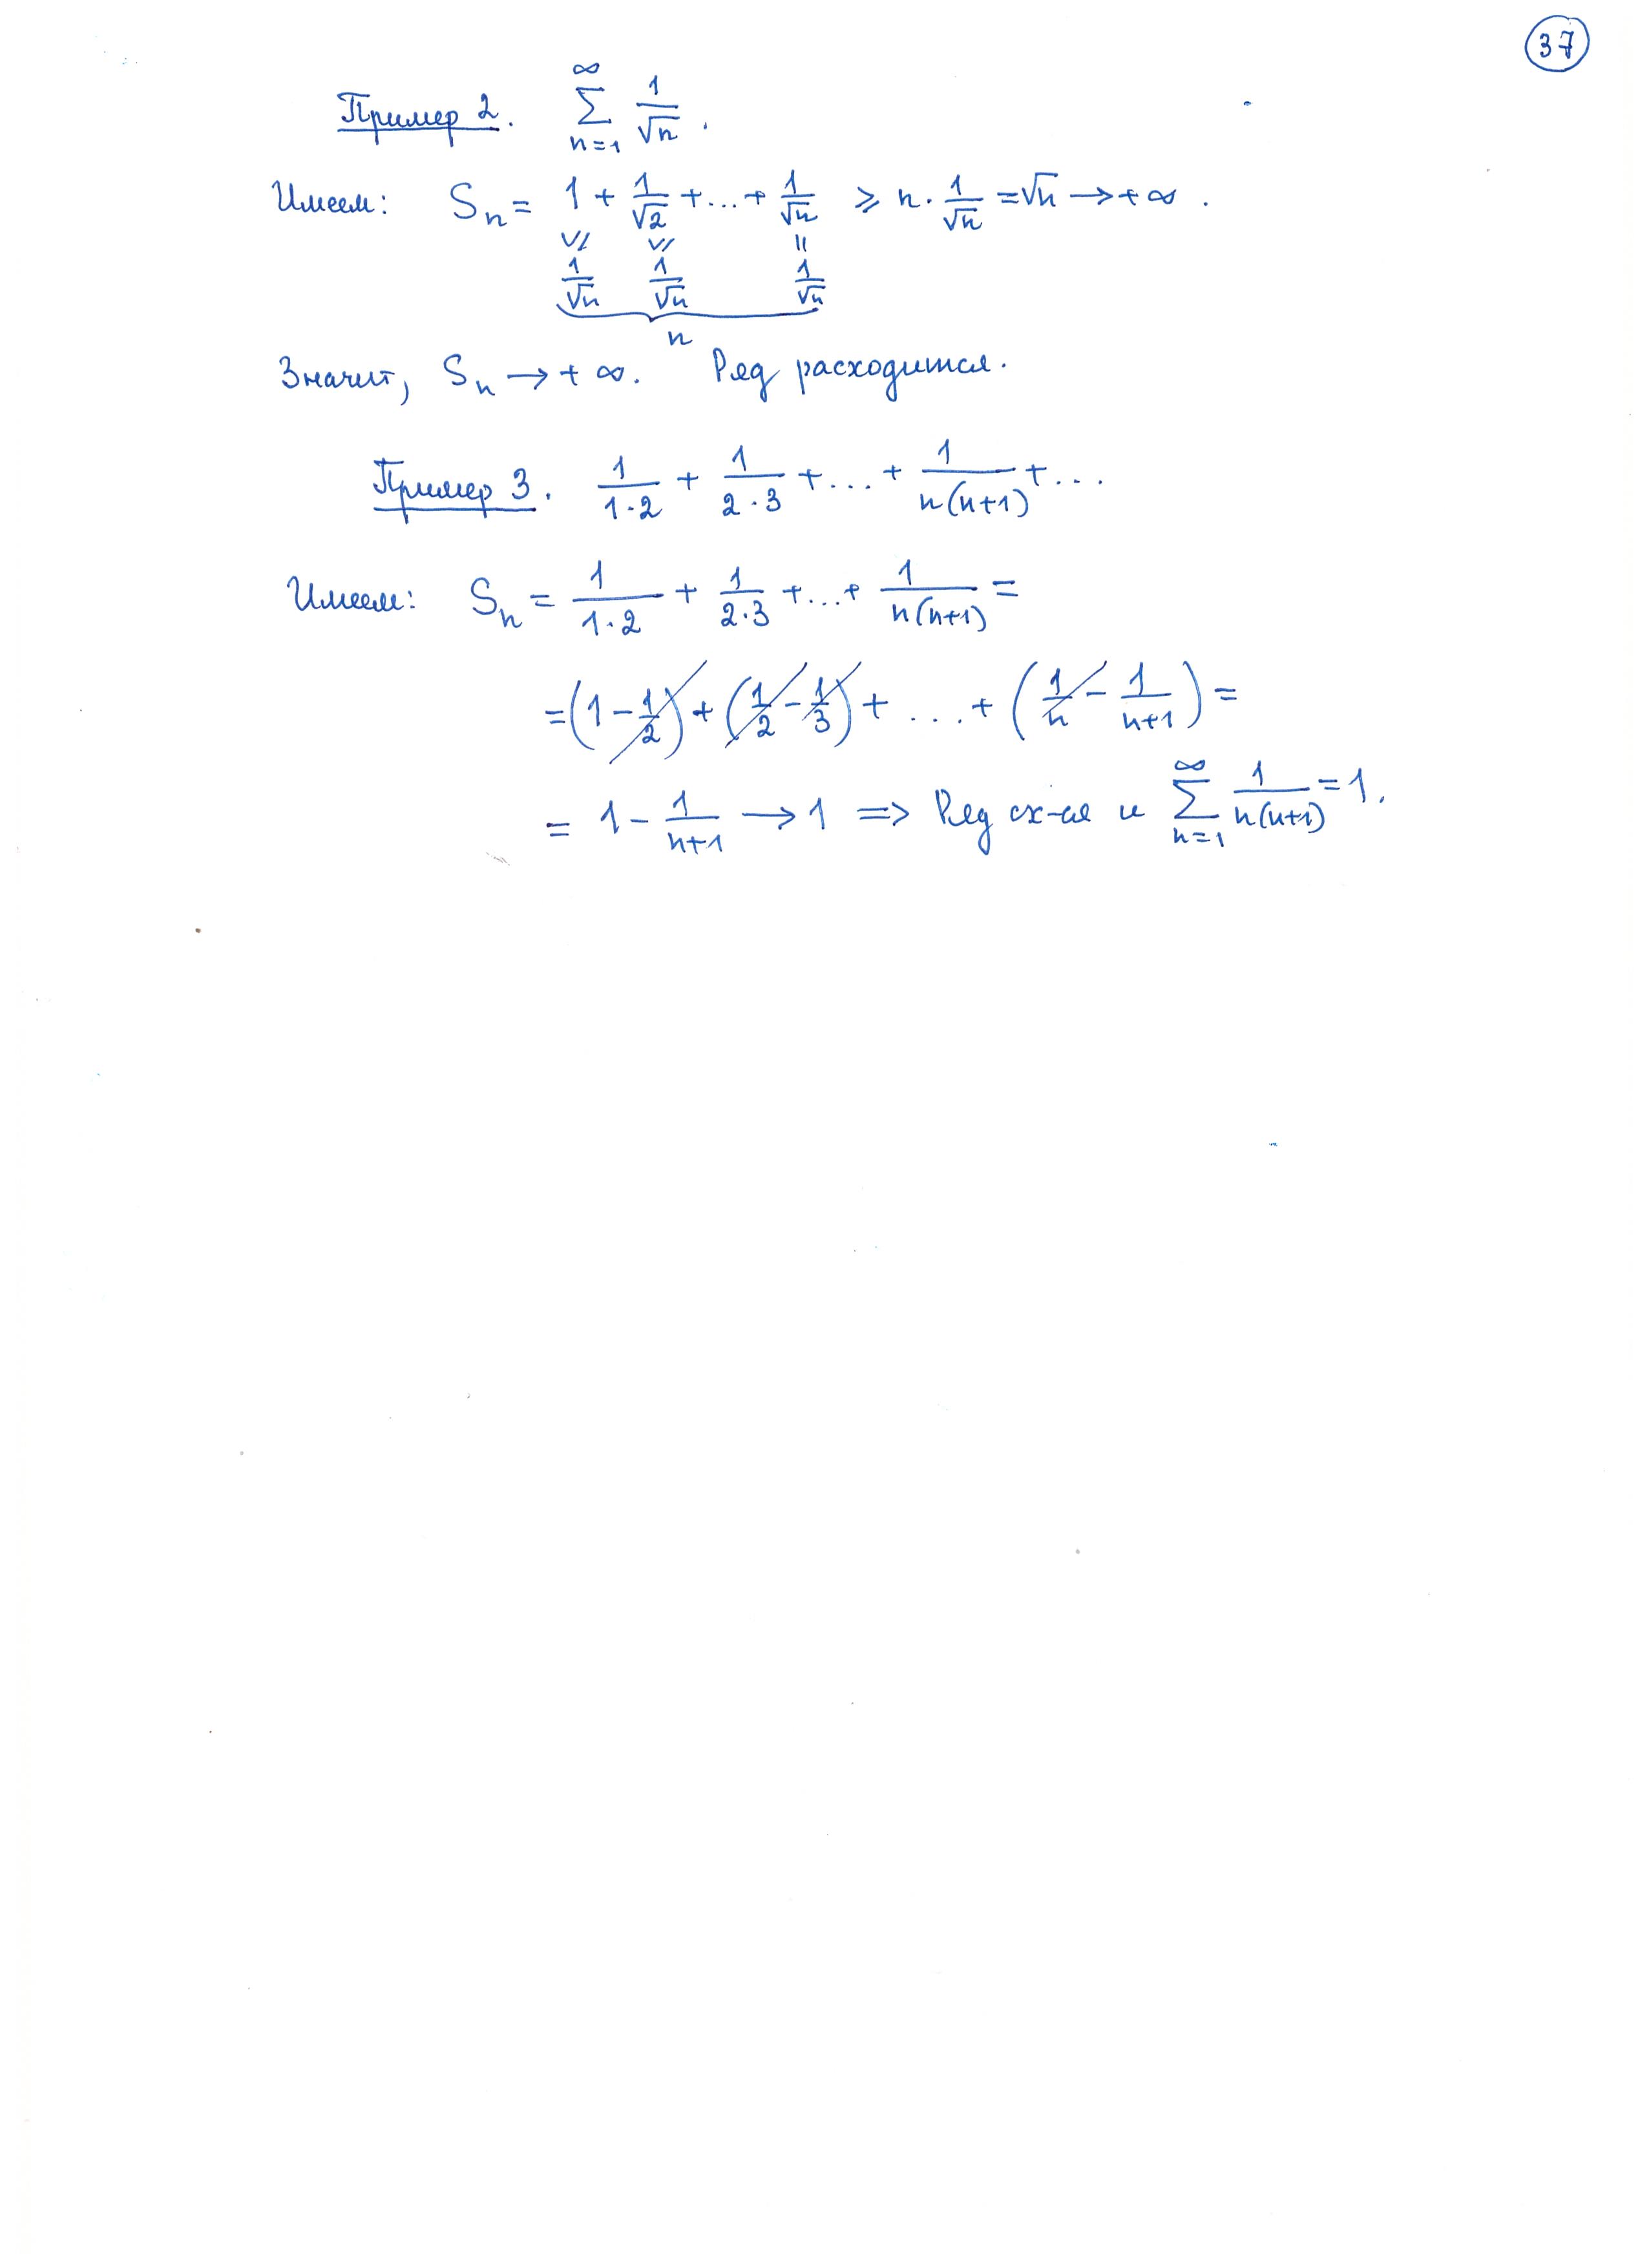 37
Пример 2. $\sum_{n=1}^{\infty} \frac{1}{\sqrt{n}}$.
Имеем: $S_n = \underbrace{\underset{\underset{\frac{1}{\sqrt{n}}}{\vee\!/}}{1} + \underset{\underset{\frac{1}{\sqrt{n}}}{\vee\!/}}{\frac{1}{\sqrt{2}}} + \ldots + \underset{\underset{\frac{1}{\sqrt{n}}}{||}}{\frac{1}{\sqrt{n}}}}_{n} \geqslant n \cdot \frac{1}{\sqrt{n}} = \sqrt{n} \to +\infty$.
Значит, $S_n \to +\infty$. Ряд расходится.
Пример 3. $\frac{1}{1 \cdot 2} + \frac{1}{2 \cdot 3} + \ldots + \frac{1}{n(n+1)} + \ldots$
Имеем: $S_n = \frac{1}{1 \cdot 2} + \frac{1}{2 \cdot 3} + \ldots + \frac{1}{n(n+1)} =$
$= \left(1 - \cancel{\frac{1}{2}}\right) + \left(\cancel{\frac{1}{2}} - \cancel{\frac{1}{3}}\right) + \ldots + \left(\cancel{\frac{1}{n}} - \frac{1}{n+1}\right) =$
$= 1 - \frac{1}{n+1} \to 1 \Rightarrow$ Ряд сх-ся и $\sum_{n=1}^{\infty} \frac{1}{n(n+1)} = 1$.